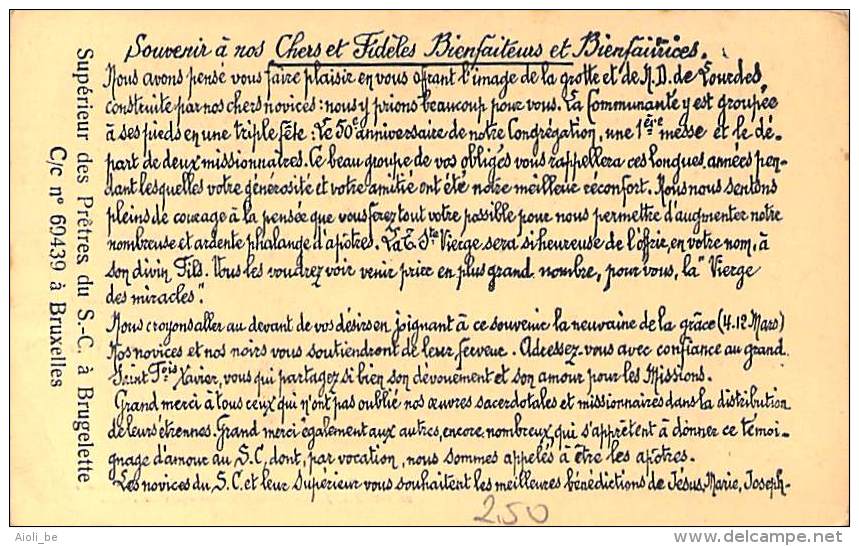 Souvenir à nos Chers et Fidèles Bienfaiteurs et Bienfaitrices.
Nous avons pensé vous faire plaisir en vous ofrant l'image de la grotte et de N.D. de Lourdes,
construite par nos chers novices: nous y prions beaucoup pour vous. La Communauté y est groupée
à ses pieds en une triple fête: Le 50e anniversaire de notre Congrégation, une 1ère messe et le dé-
part de deux missionnaires. Ce beau groupe de vos obligés vous rappellera ces longues années pen-
dant lesquelles votre générosité et votre amitié ont été notre meilleur réconfort. Nous nous sentons
pleins de courage à la pensée que vous ferez tout votre possible pour nous permettre d'augmenter notre
nombreuse et ardente phalange d'apôtres. La T. Ste Vierge sera si heureuse de l'offrir, en votre nom, à
son divin Fils. Vous les voudrez voir venir prier en plus grand nombre, pour vous, la "Vierge
des miracles".
Nous croyons aller au devant de vos désirs en joignant à ce souvenir la neuvaine de la grâce (4-12 Mars)
Nos novices et nos noirs vous soutiendront de leur ferveur. Adressez-vous avec confiance au grand
Saint Fois Xavier, vous qui partagez si bien son dévouement et son amour pour les Missions.
Grand merci à tous ceux qui n'ont pas oublié nos œuvres sacerdotales et missionnaires dans la distribution
de leurs étrennes. Grand merci également aux autres, encore nombreux, qui s'apprêtent à donner ce témoi-
gnage d'amour au S.C, dont, par vocation, nous sommes appelés à être les apôtres.
Les novices du S.C. et leur Supérieur vous souhaitent les meilleures bénédictions de Jésus, Marie, Joseph-
Supérieur des Prêtres du S.-C. à Brugelette
C/c n° 69439 à Bruxelles
2,50
Aioli_be
delcampe.net